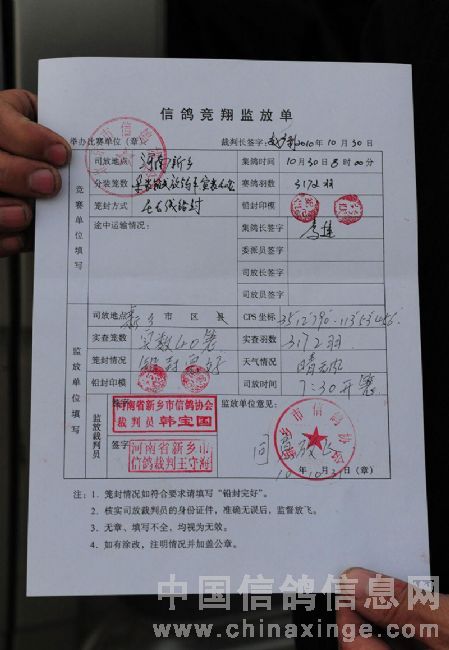 信鸽竞翔监放单
举办比赛单位（章） 裁判长签字： 2010年10月30日
竞赛单位填写
司放地点 河南新乡 集鸽时间 10月30日8时00分
分装笼数 赛鸽羽数 3172羽
笼封方式 铅封印模
途中运输情况： 集鸽长签字
委派员签字
司放长签字
司放员签字
监放单位填写
司放地点 新乡市区县 CPS坐标
实查笼数 实数60笼 实查羽数 3172羽
笼封情况 铅封完好 天气情况 晴无风
铅封印模 司放时间 7:30开笼
监放裁判员
签字
河南省新乡市信鸽协会
裁判员 韩宝国
签字
河南省新乡市
信鸽裁判王守海
监放单位意见：
同意放飞
新乡市信鸽协会
年 月 日（章）
注：1. 笼封情况如符合要求请填写“铅封完好”。
2. 核实司放裁判员的身份证件，准确无误后，监督放飞。
3. 无章、填写不全，均视为无效。
4. 如有涂改，注明情况并加盖公章。
中国信鸽信息网
www.chinaxinge.com